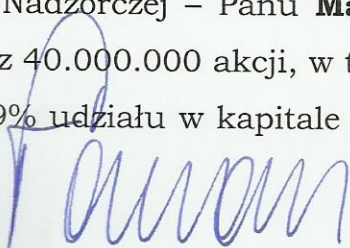 Nadzorczej – Panu Ma
z 40.000.000 akcji, w t
9% udziału w kapitale